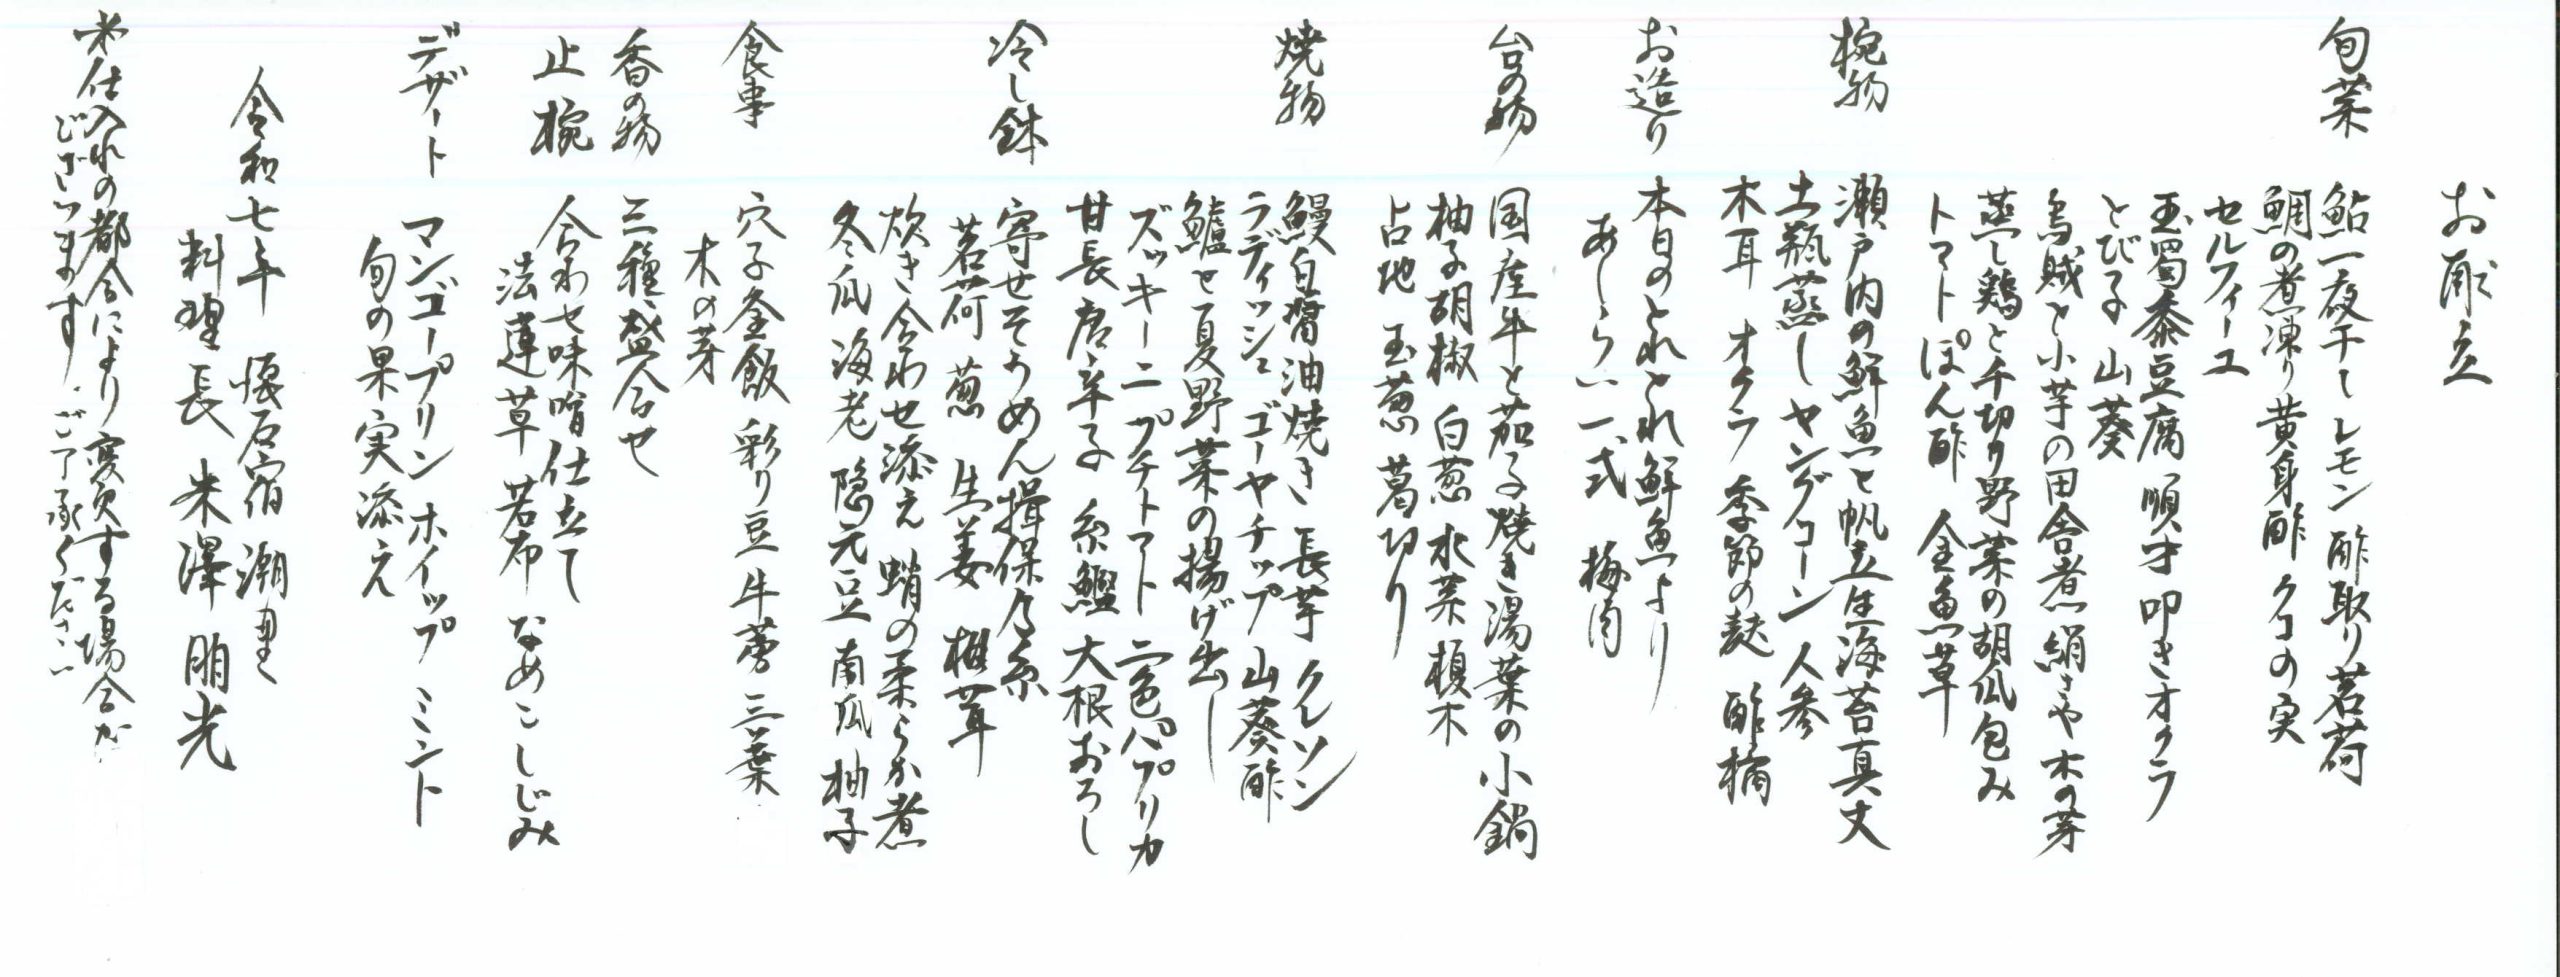 お献立
旬菜
鮎一夜干し レモン 酢取り茗荷
鯛の煮凍り 黄身酢 クコの実
セルフィーユ
玉蜀黍豆腐 順才 叩きオクラ
とびこ 山葵
烏賊と小芋の田舎煮 絹さや 木の芽
蒸し鶏と千切り野菜の胡瓜包み
トマトぽん酢 金魚草
椀物
瀬戸内の鮮魚と帆立生海苔真丈
土瓶蒸し ヤングコーン 人参
木耳 オクラ 季節の麸 酢橘
お造り
本日のとれとれ鮮魚より
あしらい一式 梅肉
台の物
国産牛と茄子焼き湯葉の小鍋
柚子胡椒 白葱 水菜 榎木
占地 玉葱 葛切り
焼物
鰻白醤油焼き 長芋 クレソン
ラディッシュ ゴーヤチップ 山葵酢
鱸と夏野菜の揚げ出し
ズッキーニ プチトマト 二色パプリカ
甘長唐辛子 糸鰹 大根おろし
冷し鉢
寄せそうめん揖保乃糸
茗荷 葱 生姜 椎茸
炊き合わせ添え 蛸の柔らか煮
冬瓜 海老 隠元豆 南瓜 柚子
食事
穴子釜飯 彩り豆 牛蒡 三つ葉
木の芽
香の物
三種盛合せ
止椀
合わせ味噌仕立て
法蓮草 若布 なめこ しじみ
デザート
マンゴープリン ホイップ ミント
旬の果実添え
令和七年 懐石宿 潮里
料理長 米澤 朋光
※仕入れの都合により変更する場合が
ございます。ご了承ください